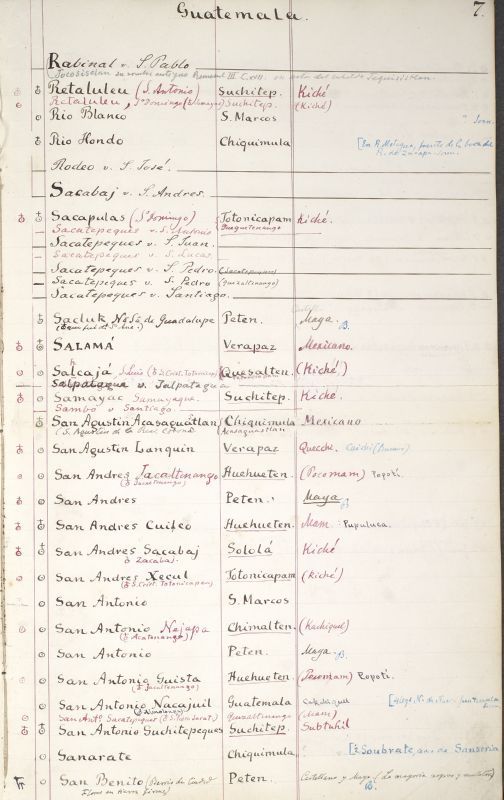 Guatemala. 7.
Rabinal v. S. Pablo
Retaluleu (S. Antonio) Suchitep. Kiché
Retaluleu, Sto Domingo Suchitep. (Kiché)
Rio Blanco S. Marcos
Rio Hondo Chiquimula
Rodeo v. S. José.
Sacabaj v. S. Andres.
Sacapulas (Sto Domingo) Totonicapam Kiché.
Sacatepeques v. S. Antonio Quezaltenango
Sacatepeques v. S. Juan.
Sacatepeques v. S. Lucas.
Sacatepeques v. S. Pedro (Sacatepeques)
Sacatepeques v. S. Pedro (Quezaltenango)
Sacatepeques v. Santiago.
Sacluk Na Sa de Guadalupe Peten. Maya. B.
Salamá Verapaz Mexicano.
Salcajá, S. Luis (S. Crist. Totonicapam) Quesalten. (Kiché)
Salpatagua v. Jalpatagua
Samayac Samayaque. Suchitep. Kiché.
Sambo v. Santiago.
San Agustin Acasaguatlan Chiquimula Mexicano
(S. Agustin de la Real Corona) (Acasaguastlan
San Agustin Lanquin Verapaz Quecchi. Caichi
San Andres Jacaltenango Huehueten. (Pocomam) Popoti.
(Jacaltenango)
San Andres Peten. Maya B
San Andres Cuifco Huehueten. Mam. Pupuluca.
San Andres Sacabaj Sololá Kiché
Zacabaj.
San Andres Xecul Totonicapam (Kiché)
(S. Crist. Totonicapam)
San Antonio S. Marcos
San Antonio Nejapa Chimalten. (Kachiquel)
(Acatenango)
San Antonio Peten. Maya. B.
San Antonio Guista Huehueten. (Pocomam) Popoti.
(Jacaltenango)
San Antonio Nacajuil Guatemala cakchiquel
San Anto Sacatepeques Quezaltenango (Mam)
San Antonio Suchitepeques Suchitep. Subtuhil
Sanarate Chiquimula. [Soubrate, au. de Sansaria
San Benito (Barrio de Ciudad Peten. Castellano y Maya (La mayoria negros y mulatos)
Flores en tierra firme) B.